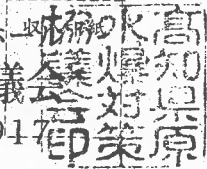 高知県原
水爆対策
協議会印
義